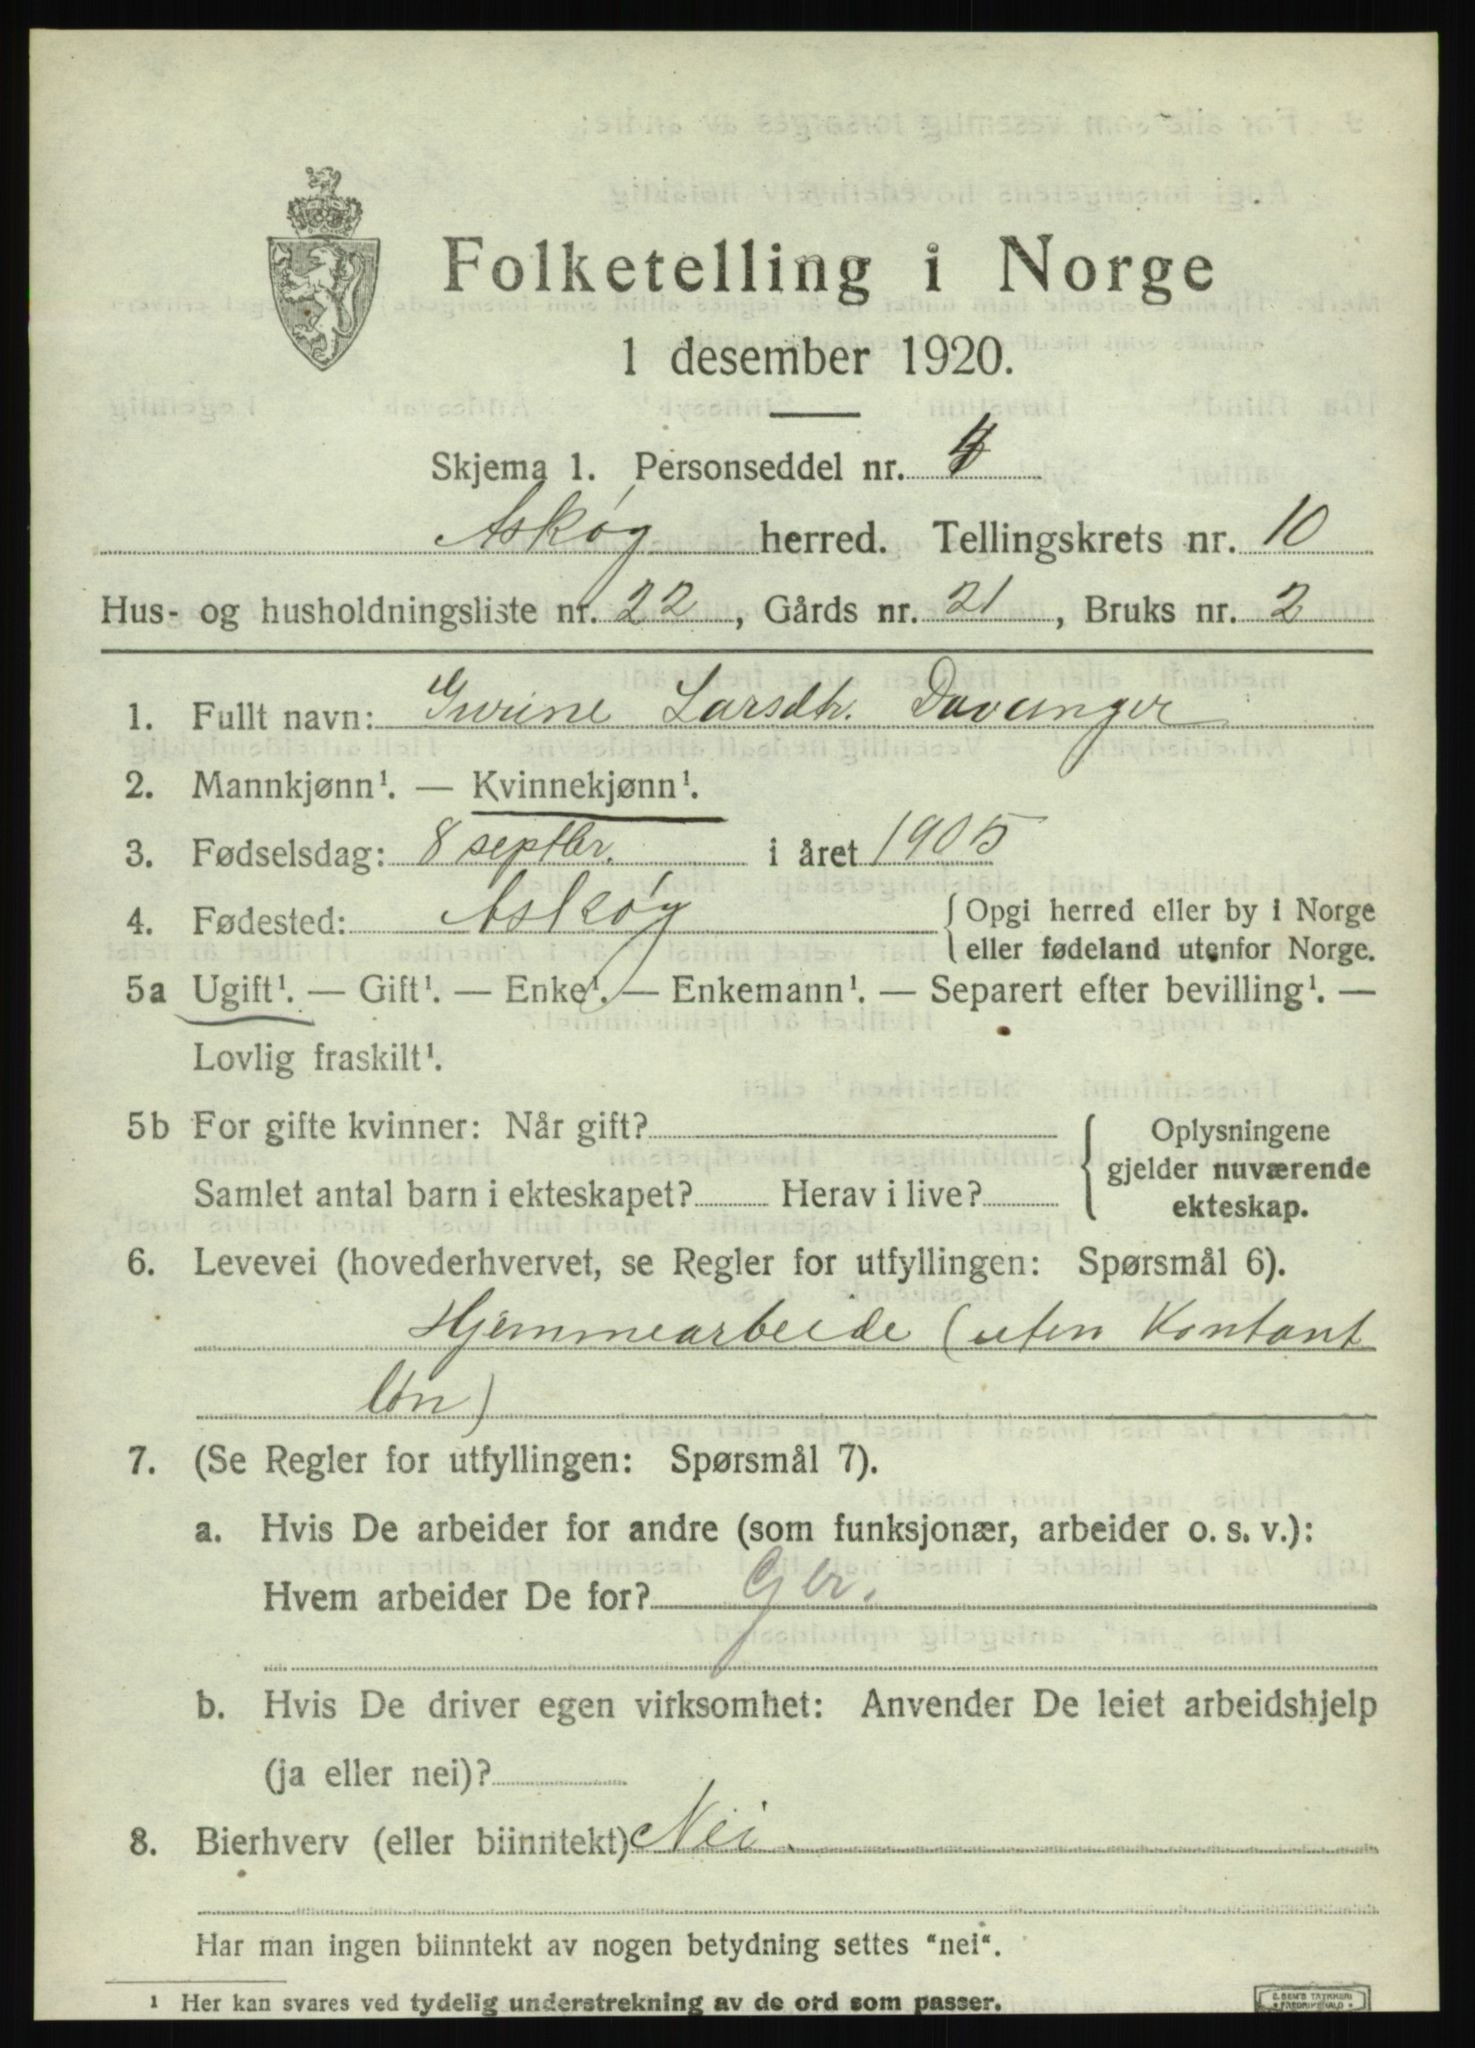 Folketelling i Norge
1 desember 1920.
Skjema 1. Personseddel nr. 4
Askøy herred. Tellingskrets nr. 10
Hus- og husholdningsliste nr. 22, Gårds nr. 21, Bruks nr. 2
1. Fullt navn: Gurine Larsdtr. Davanger
2. Mannkjønn¹. — Kvinnekjønn¹.
3. Fødselsdag: 8 septbr. i året 1905
4. Fødested: Askøy { Opgi herred eller by i Norge
eller fødeland utenfor Norge.
5a Ugift¹. — Gift¹. — Enke¹. — Enkemann¹. — Separert efter bevilling¹. —
Lovlig fraskilt¹.
5b For gifte kvinner: Når gift? { Oplysningene
gjelder nuværende
Samlet antal barn i ekteskapet? Herav i live?
ekteskap.
6. Levevei (hovederhvervet, se Regler for utfyllingen: Spørsmål 6).
Hjemmearbeide (uten Kontant
løn)
7. (Se Regler for utfyllingen: Spørsmål 7).
a. Hvis De arbeider for andre (som funksjonær, arbeider o. s. v.):
Hvem arbeider De for?
b. Hvis De driver egen virksomhet: Anvender De leiet arbeidshjelp
(ja eller nei)?
8. Bierhverv (eller biinntekt) Nei.
Har man ingen biinntekt av nogen betydning settes "nei".
¹ Her kan svares ved tydelig understrekning av de ord som passer.